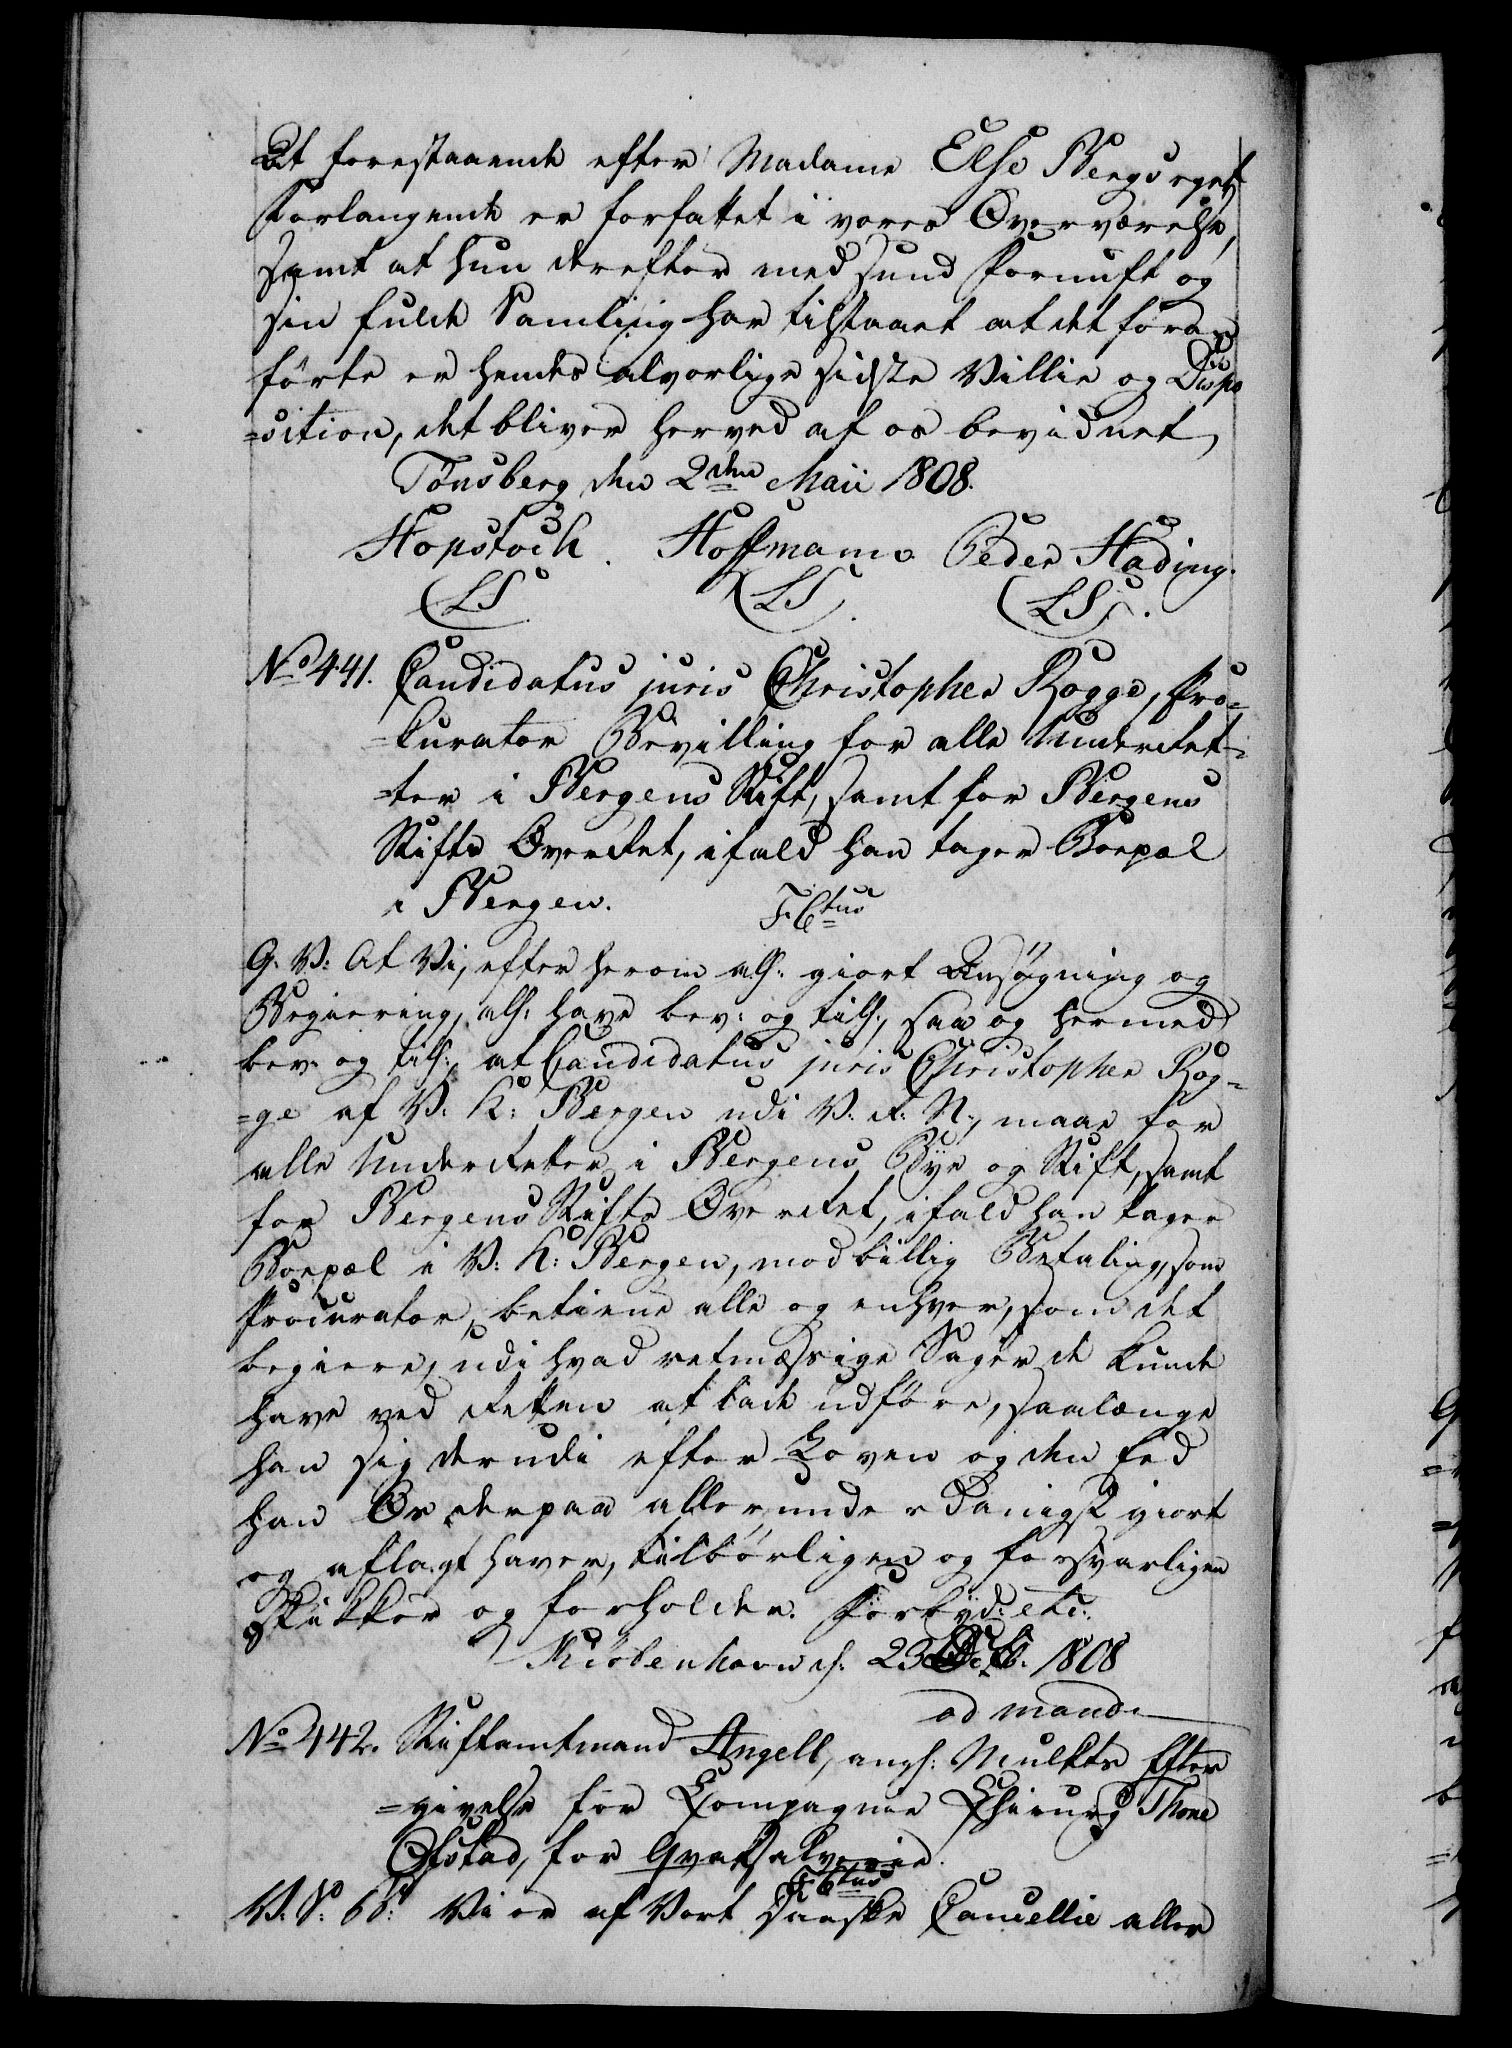 At forestaaende efter Madame Else Bergs eget
Forlangende er forfattet i vores Overværelse,
samt at hun derefter med sund Fornuft og
sin fulde Samling har tilstaaet at det foran
förte er hendes alvorlige sidste Villie og Dispo
=sition, det bliver herved af os bevidnet,
Tönsberg den 2den Maii 1808.
Hopstock. Hoffmann. Peder Hading.
LS LS. LS.
No 441. Candidatus juris Christopher Rogge, Pro=
=kurator Bevilling for alle Underret=
=ter i Bergens Stift, samt for Bergens
Stifts Overret, ifald han tager Boepæl
i Bergen.
F. Ctus
G. V: At Vi, efter herom all: giort Ansøgning og
Begiering, all: have bev: og till:, saa og hermed
bev: og till:, at Candidatus juris Christopher Rog=
=ge af V. K: Bergen udi V: R: N:, maae for
alle Underretter i Bergens Bye og Stift, samt
for Bergens Stifts Overret, ifald han tager
Boepæl i V: K: Bergen, mod billig Betaling, som
Procurator, betiene alle og enhver, som det
begiere, udi hvad retmæssige Sager de kunde
have ved Retten at lade udföre, saalænge
han sig derudi efter Loven og den Eed
han Os derpaa allerunderdanigst giort
og aflagt haver, tilbörligen og forsvarligen
skikker og forholder. Forbyd: etc:
Kiöbenhavn d: 23 1808
ad mand:
No 442. Stiftamtmand Angell, angl: Mulkts Efter
=givelse for Compagnie Chirurg Thone
Ofstad, for Qvaksalverie.
F. Ctus
V: S: G: Vi er af Vort danske Cancellie aller